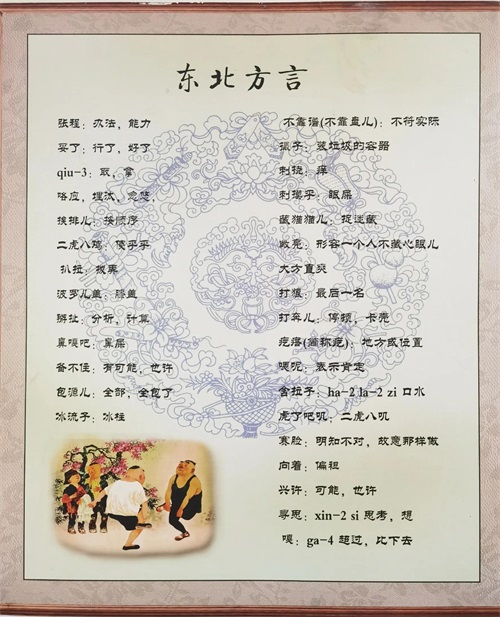 东北方言
张程：办法，能力
妥了：行了，好了
qiu-3：取，拿
咯应，埋汰，忽悠，
挨排儿：按顺序
二虎八鸡，傻乎乎
扒拉：拨弄
波罗儿盖：膝盖
掰扯：分析，计算
鼻嘎吧：鼻屎
备不住：有可能，也许
包源儿：全部，全包了
冰流子：冰柱
不靠谱(不靠盘儿)：不符实际
撮子：装垃圾的容器
刺挠：痒
刺模乎：眼屎
藏猫猫儿：捉迷藏
敞亮：形容一个人不藏心眼儿
大方直爽
打狼：最后一名
打奔儿：停顿，卡壳
疙瘩(简称疙)：地方或位置
嗯呢：表示肯定
含拉子：ha-2 la-2 zi 口水
虎了吧叽：二虎八叽
赛脸：明知不对，故意那样做
向着：偏袒
兴许：可能，也许
寻思：xin-2 si 思考，想
嘎：ga-4 超过，比下去